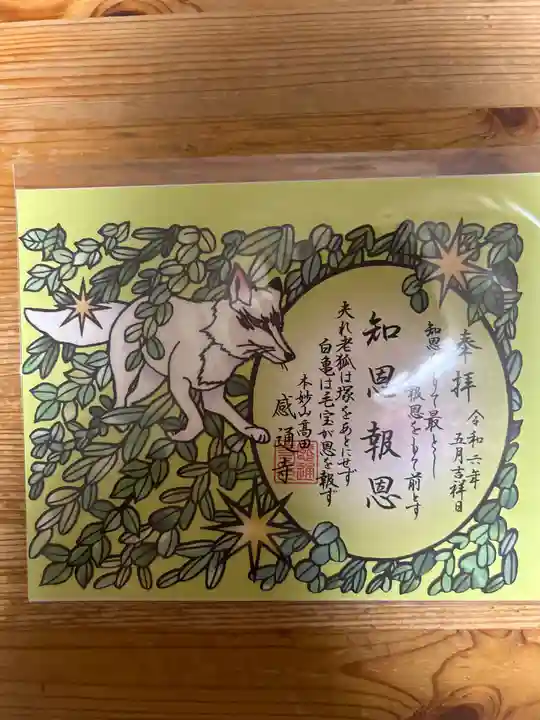 奉拝
令和六年
五月吉祥日
知恩をもて最とし
報恩をもて前とす
知恩報恩
夫れ老狐は塚をあとにせず
白亀は毛宝が恩を報ず
本妙山髙田
感通寺